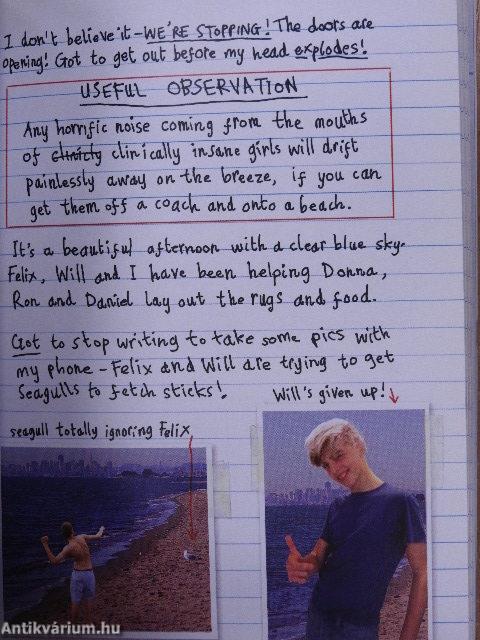 I don't believe it – WE'RE STOPPING! The doors are
opening! Got to get out before my head explodes!
USEFUL OBSERVATION
Any horrific noise coming from the mouths
of clinically insane girls will drift
painlessly away on the breeze, if you can
get them off a coach and onto a beach.
It's a beautiful afternoon with a clear blue sky.
Felix, Will and I have been helping Donna,
Ron and Daniel lay out the rugs and food.
Got to stop writing to take some pics with
my phone – Felix and Will are trying to get
Seagulls to fetch sticks!
Will's given up!
seagull totally ignoring Felix
Antikvárium.hu